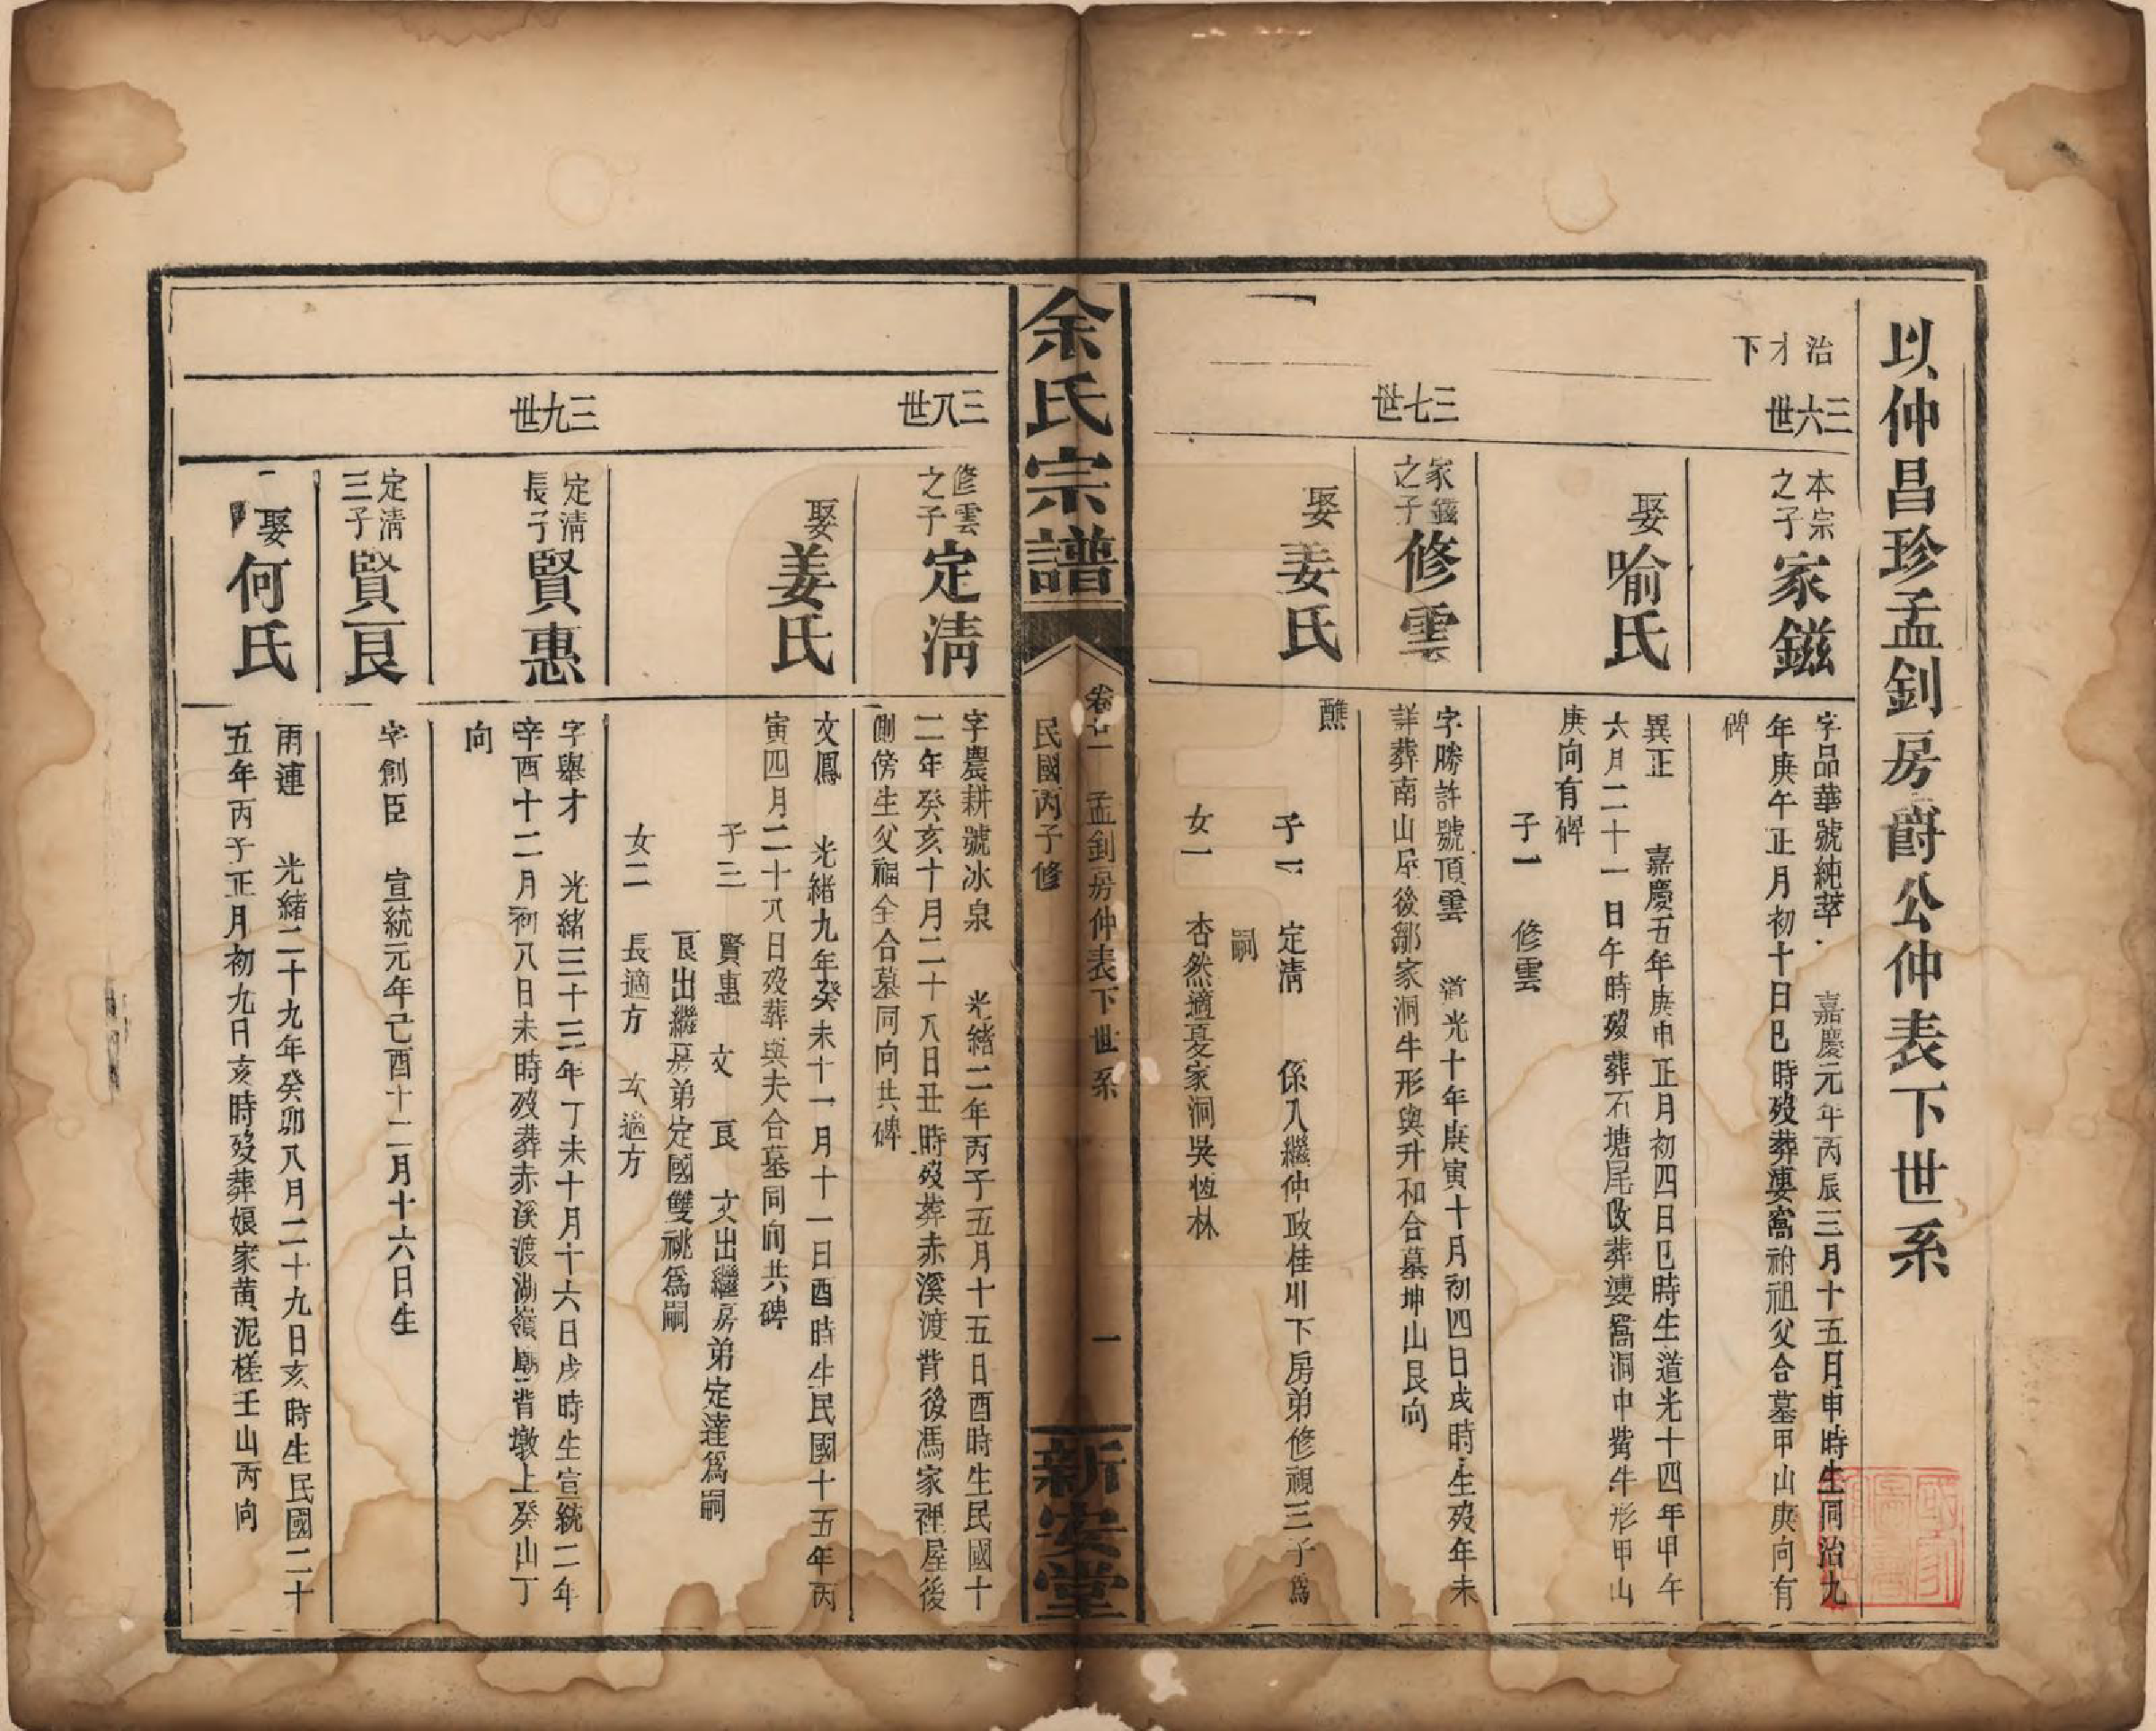 以仲昌珍孟釗房爵公仲表下世系
治才下
三六世
本宗之子家鎡
字品華號純萃 嘉慶元年丙辰三月十五日申時生同治九
年庚午正月初十日巳時歿葬𡝤窩祔祖父合墓甲山庚向有
碑
娶喻氏
異正 嘉慶五年庚申正月初四日巳時生道光十四年甲午
六月二十一日午時歿葬石塘尾改葬𡝤窩洞中黃牛形甲山
庚向有碑
子一 修雲
三七世
家鎡之子修雲
字勝許號頂雲 道光十年庚寅十月初四日戌時生歿年未
詳葬南山屋後鄒家洞牛形與升和合墓坤山艮向
娶姜氏
醮
子一 定清 係入繼仲政桂川下房弟修視三子為
嗣
女一 杏然適夏家洞吳恆林
余氏宗譜
卷廿一 孟釗房仲表下世系 一
民國丙子修
新安堂
三八世
修雲之子定清
字農耕號冰泉 光緒二年丙子五月十五日酉時生民國十
二年癸亥十月二十八日丑時歿葬赤溪渡背後馮家裡屋後
側傍生父福全合墓同向共碑
娶姜氏
文鳳 光緒九年癸未十一月十一日酉時生民國十五年丙
寅四月二十八日歿葬與夫合墓同向共碑
子三 賢惠 文 良 文出繼房弟定達為嗣
良出繼房弟定國雙祧為嗣
女二 長適方 次適方
三九世
定清長子賢惠
字舉才 光緒三十三年丁未十月十六日戌時生宣統二年
辛酉十二月初八日未時歿葬赤溪渡湖嶺廟背墩上癸山丁
向
定清三子賢良
字創臣 宣統元年己酉十二月十六日生
娶何氏
雨連 光緒二十九年癸卯八月二十九日亥時生民國二十
五年丙子正月初九日亥時歿葬娘家黃泥槎壬山丙向